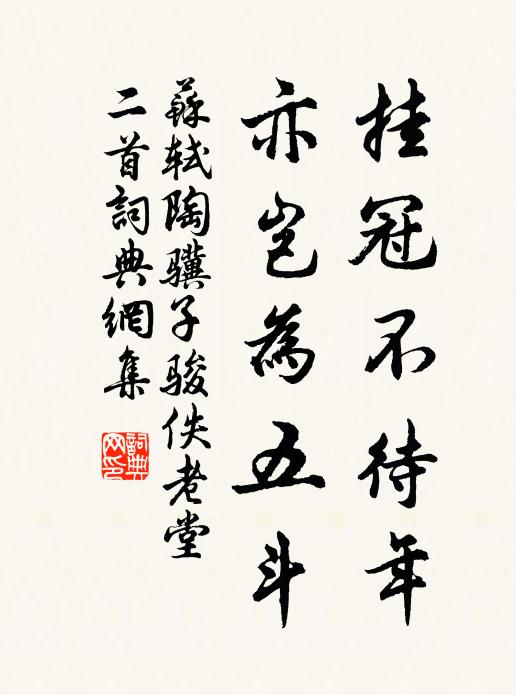 挂冠不待年
亦岂為五斗
蘇軾陶驥子駿佚老堂
二首詞典網集
詞典网印